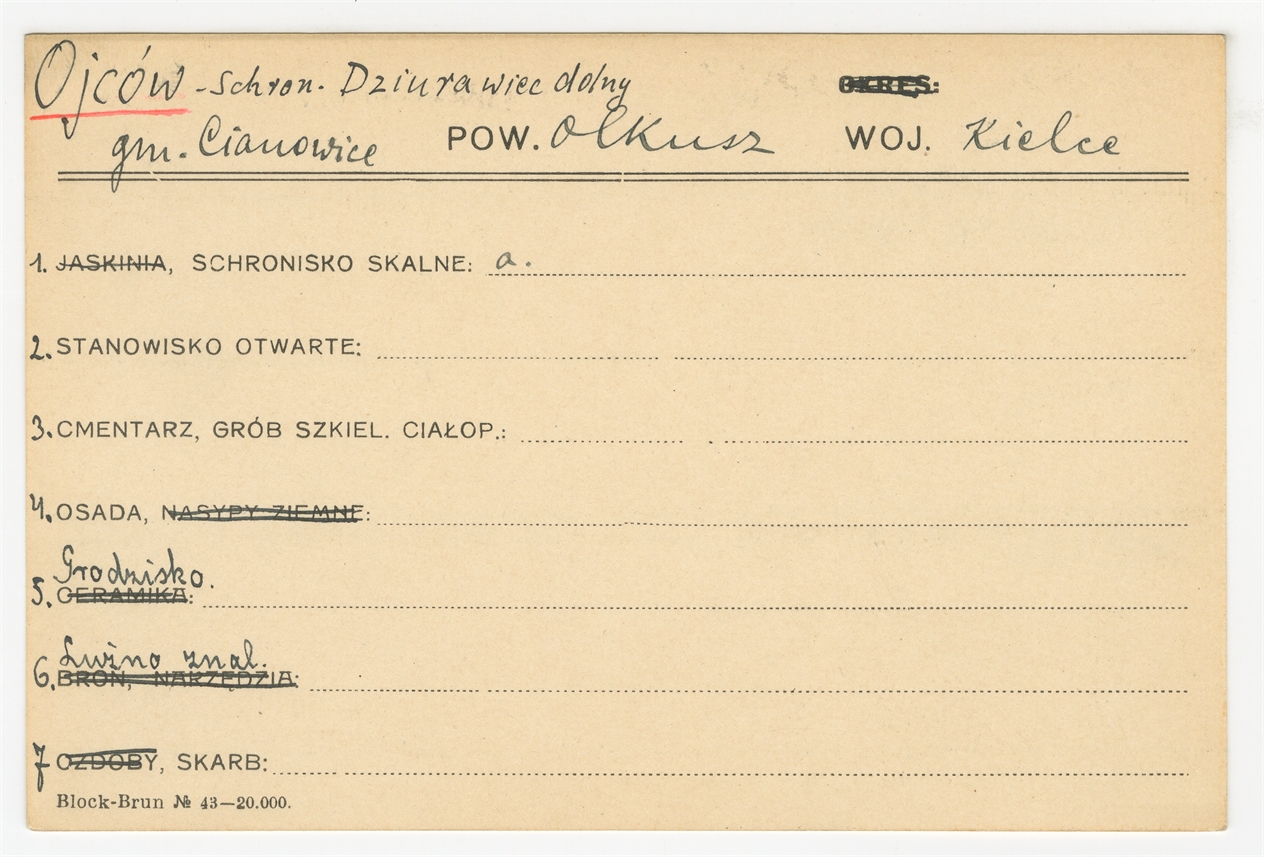 Ojców - Schron. Dziurawiec dolny OKRES:
gm. Cianowice POW. Olkusz WOJ. Kielce
1. JASKINIA, SCHRONISKO SKALNE: a.
2. STANOWISKO OTWARTE:
3. CMENTARZ, GRÓB SZKIEL. CIAŁOP.:
4. OSADA, NASYPY ZIEMNE:
Grodzisko.
5. CERAMIKA:
Luźno znal.
6. BROŃ, NARZĘDZIA:
7 OZDOBY, SKARB:
Block-Brun № 43—20.000.